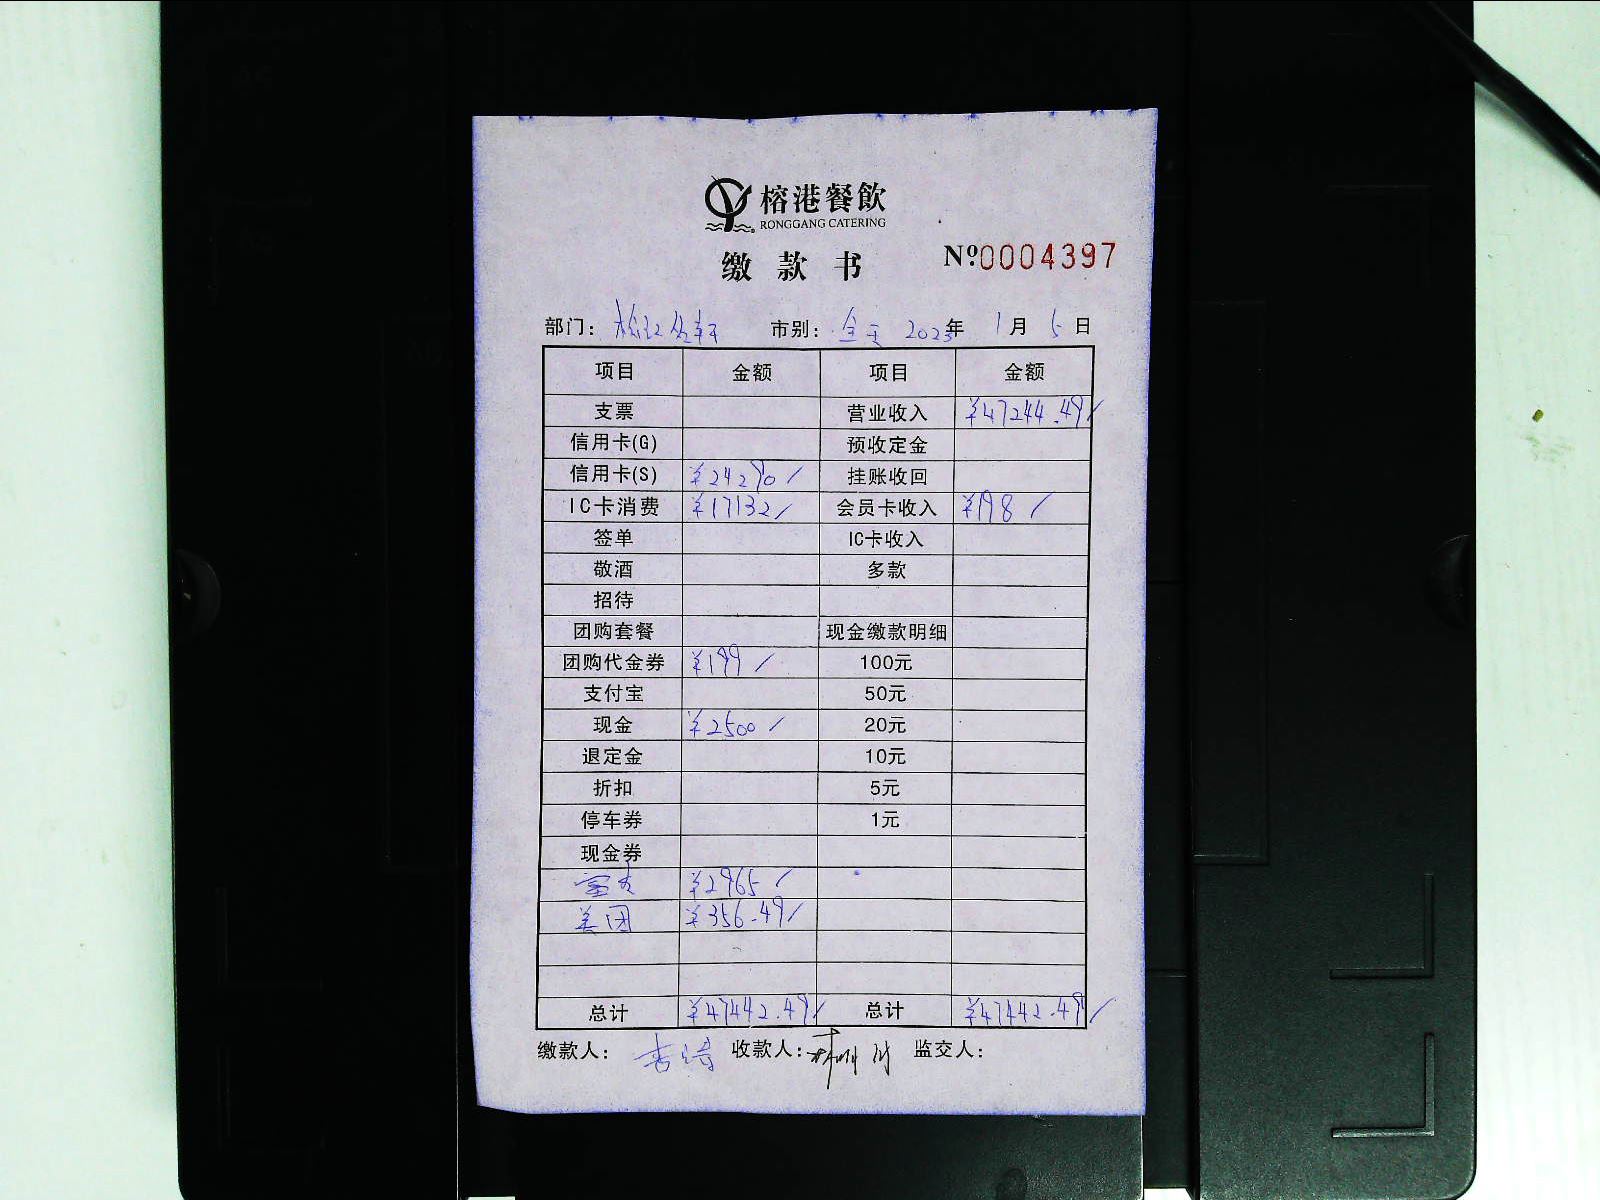 榕港餐飲
RONGGANG CATERING
缴款书 №0004397
部门： 市别：全天 2023年1月5日
项目 金额 项目 金额
支票 营业收入 ¥47244.49
信用卡(G) 预收定金
信用卡(S) ¥24290 挂账收回
IC卡消费 ¥17132 会员卡收入 ¥198
签单 IC卡收入
敬酒 多款
招待
团购套餐 现金缴款明细
团购代金券 ¥199 100元
支付宝 50元
现金 ¥2500 20元
退定金 10元
折扣 5元
停车券 1元
现金券
富友 ¥2965
美团 ¥356.49
总计 ¥47442.49 总计 ¥47442.49
缴款人： 收款人： 监交人：